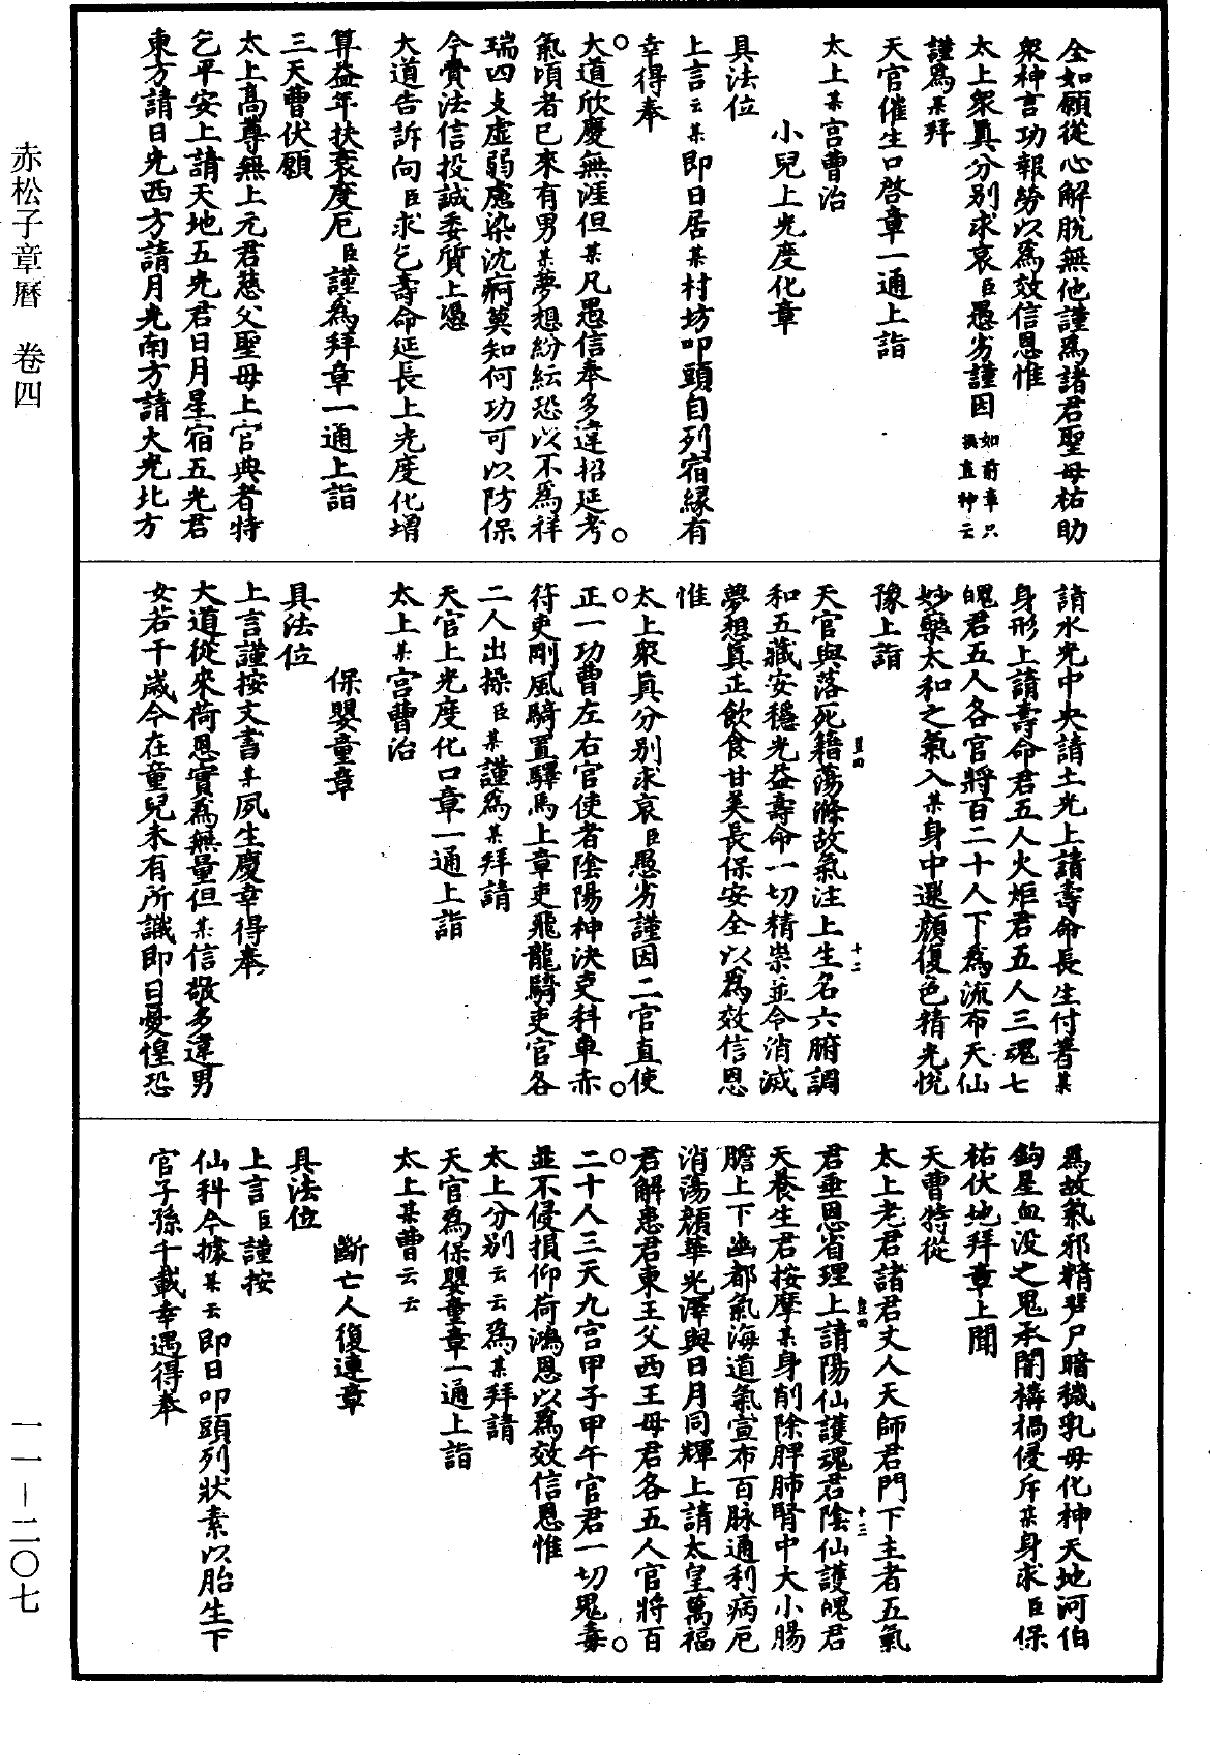 赤松子章曆　卷四
全如願從心解脫無他謹爲諸君聖母祐助
衆神言功報勞以爲效信恩惟
太上衆眞分別求哀臣愚劣謹因如前章只操直神云
謹爲某拜
天官催生口啓章一通上詣
太上某宮曹治
小兒上光度化章
具法位
上言云某即日居某村坊叩頭自列宿緣有
幸得奉
大道欣慶無涯但某凡愚信奉多違招延考
氣頃者已來有男某夢想紛紜恐以不爲祥
瑞四支虛弱慮染沈痾莫知何功可以防保
今賫法信投誠委質上憑
大道告訴向臣求乞壽命延長上光度化增
算益年扶衰度厄臣謹爲拜章一通上詣
三天曹伏願
太上高尊無上元君慈父聖母上官典者特
乞平安上請天地五光君日月星宿五光君
東方請日光西方請月光南方請火光北方
請水光中央請土光上請壽命長生付著某
身形上請壽命君五人火炬君五人三魂七
魄君五人各官將百二十人下爲流布天仙
妙藥太和之氣入某身中還顏復色精光悅
豫上詣
天官與落死籍蕩滌故氣注上生名六腑調
和五藏安穩光益壽命一切精祟並令消滅
夢想眞正飲食甘美長保安全以爲效信恩
惟
太上衆眞分別求哀臣愚劣謹因二官直使
正一功曹左右官使者陰陽神決吏科車赤
符吏剛風騎置驛馬上章吏飛龍騎吏官各
二人出操臣某謹爲某拜請
天官上光度化口章一通上詣
太上某宮曹治
保嬰童章
具法位
上言謹按文書某夙生慶幸得奉
大道從來荷恩實爲無量但某信敬多違男
女若干歲今在童兒未有所識即日憂惶恐
爲故氣邪精飛尸暗穢乳母化神天地河伯
鉤星血没之鬼承閒構禍侵斥某身求臣保
祐伏地拜章上聞
天曹特從
太上老君諸君丈人天師君門下主者五氣
君垂恩省理上請陽仙護魂君陰仙護魄君
天養生君按摩某身削除脾肺腎中大小腸
膽上下幽都氣海道氣宣布百脉通利病厄
消蕩顏華光澤與日月同輝上請太皇萬福
君解患君東王父西王母君各五人官將百
二十人三天九宮甲子甲午官君一切鬼毒
並不侵損仰荷鴻恩以爲效信恩惟
太上分別云云爲某拜請
天官爲保嬰童章一通上詣
太上某曹云云
斷亡人復連章
具法位
上言臣謹按
仙科今據某云即日叩頭列狀素以胎生下
官子孫千載幸遇得奉
一一－二〇七